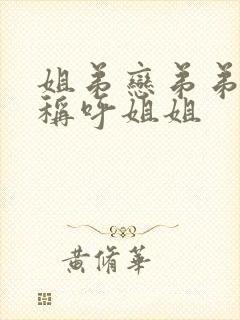 姐弟戀弟弟
稱呼姐姐
黃脩華